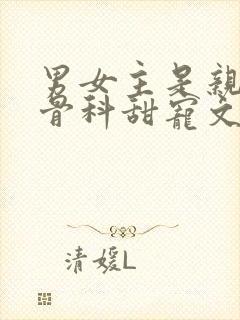 男女主是亲
骨科甜宠文
清媛L